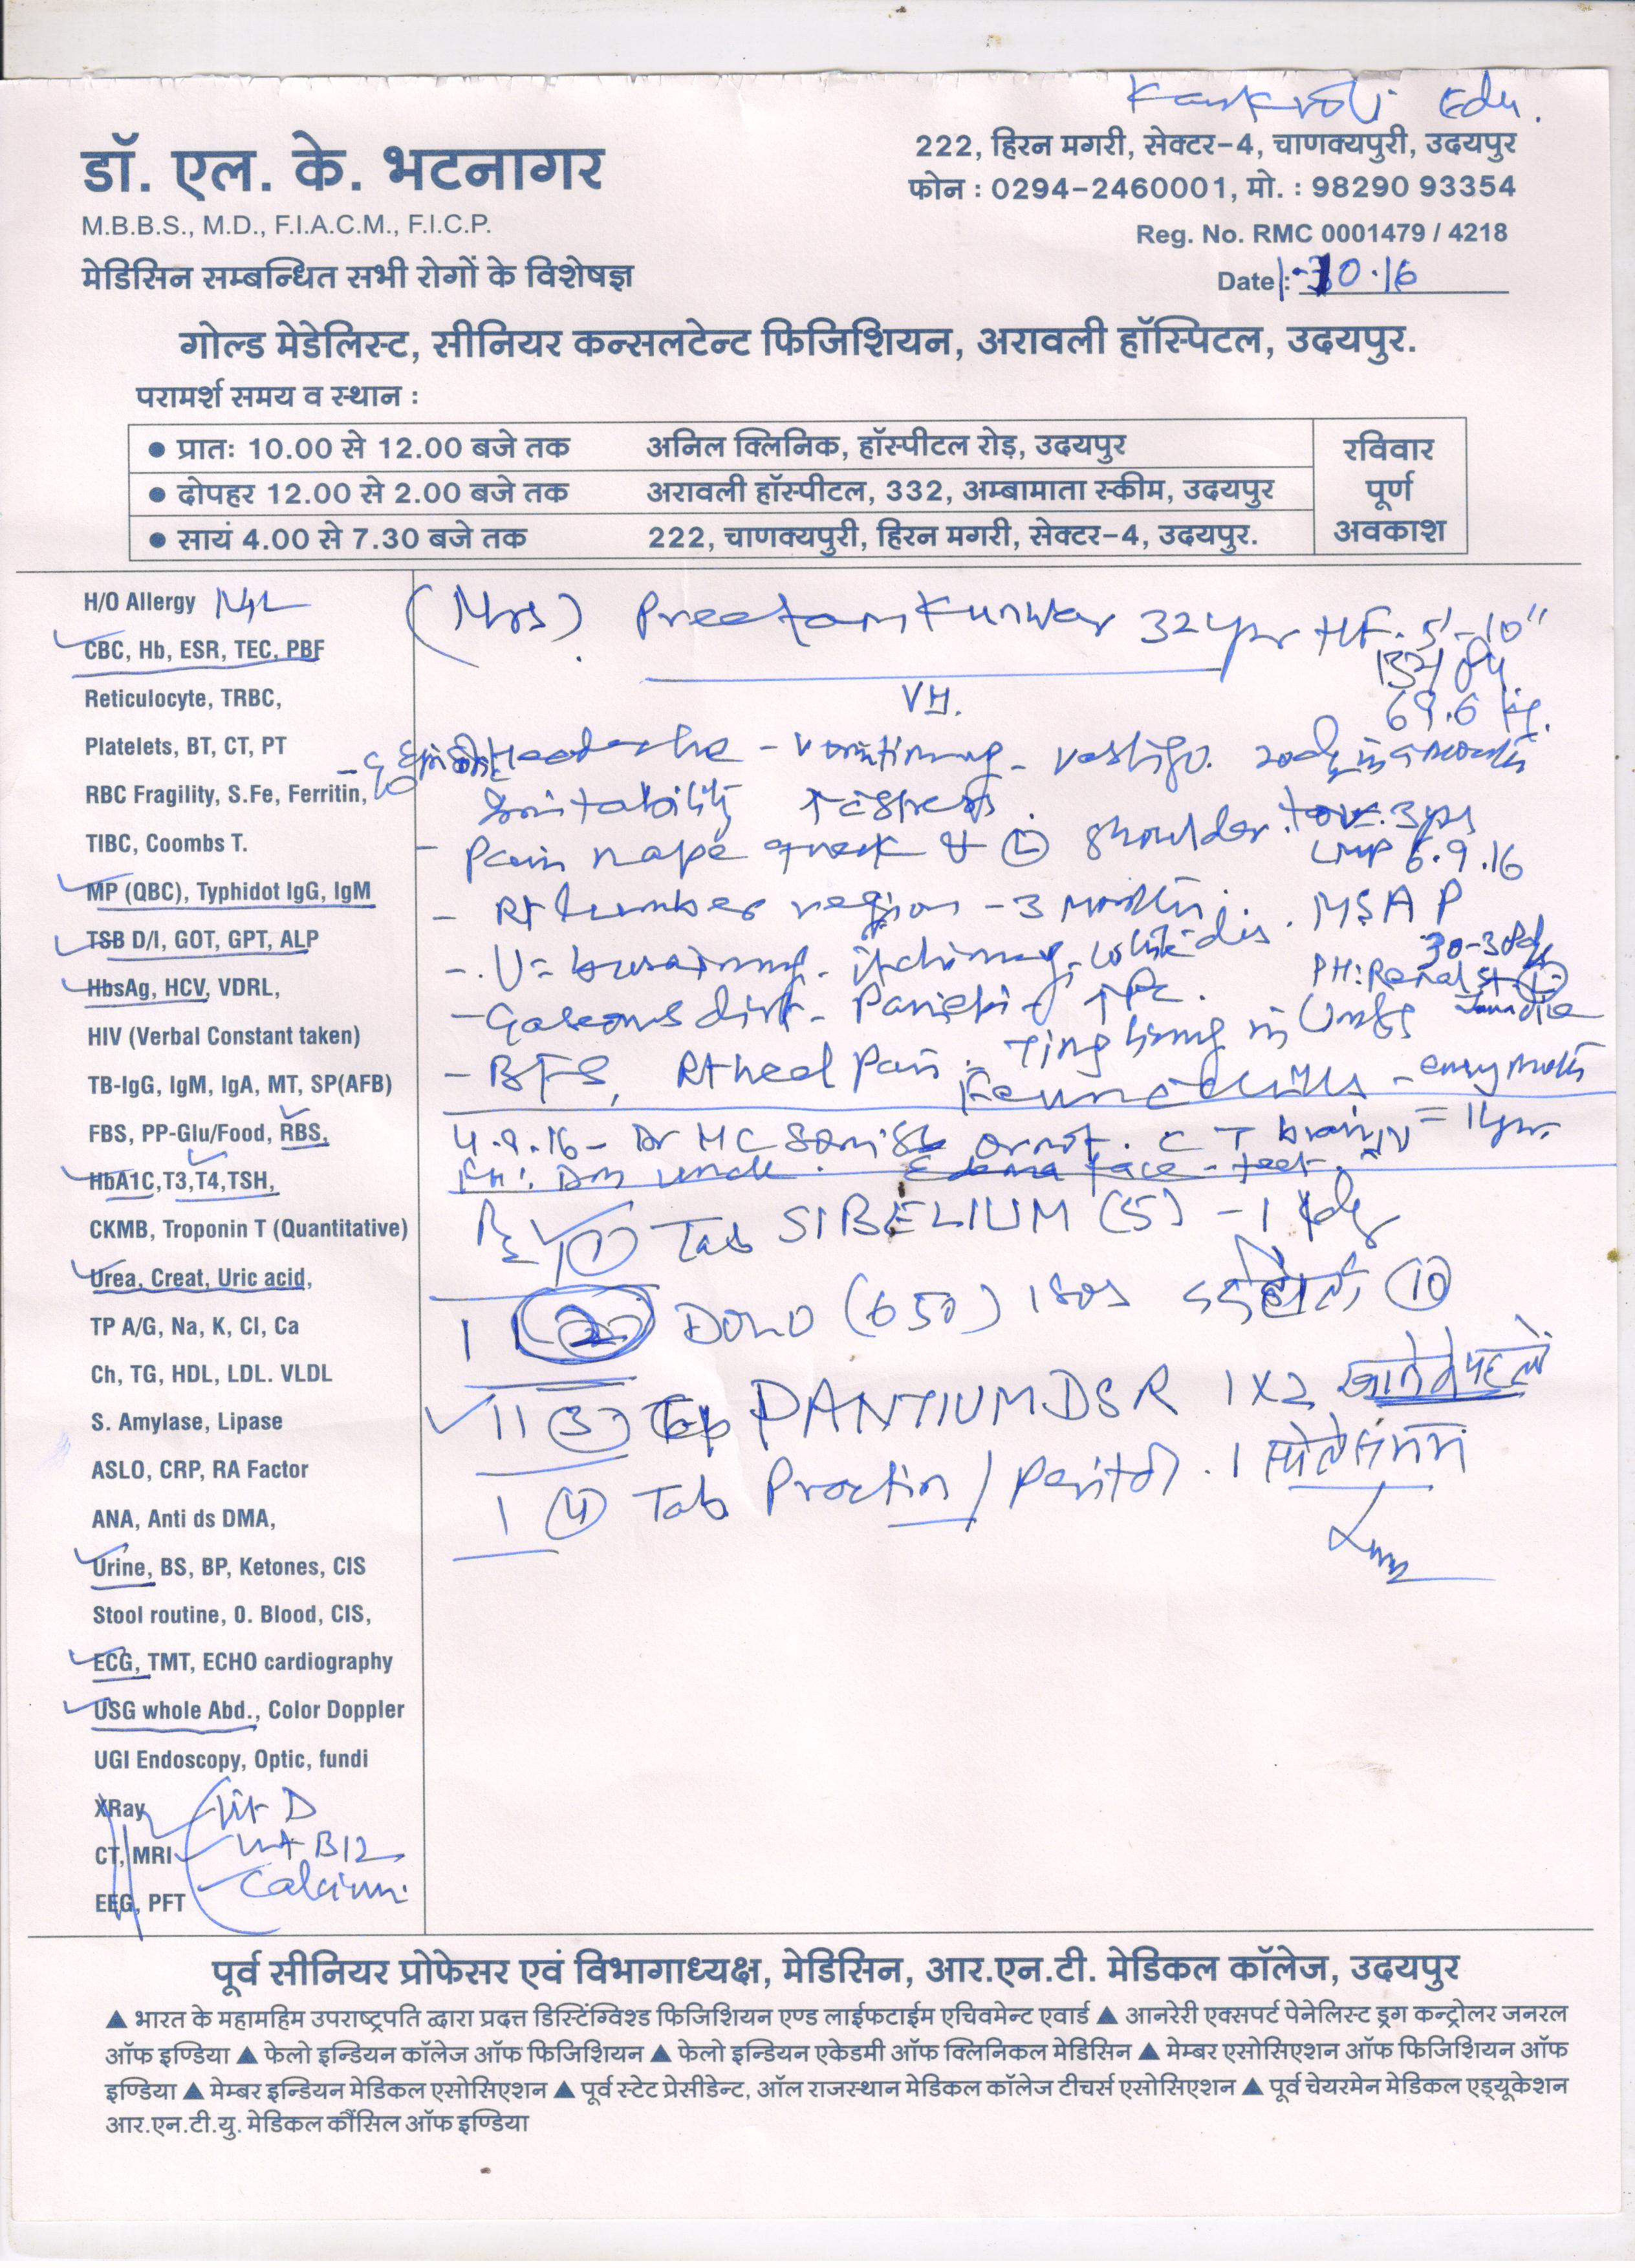 Kankroli Edu.
डॉ. एल. के. भटनागर
M.B.B.S., M.D., F.I.A.C.M., F.I.C.P.
मेडिसिन सम्बन्धित सभी रोगों के विशेषज्ञ
222, हिरन मगरी, सेक्टर-4, चाणक्यपुरी, उदयपुर
फोन : 0294-2460001, मो. : 98290 93354
Reg. No. RMC 0001479 / 4218
Date : 1-10.16
गोल्ड मेडेलिस्ट, सीनियर कन्सलटेन्ट फिजिशियन, अरावली हॉस्पिटल, उदयपुर.
परामर्श समय व स्थान :
● प्रातः 10.00 से 12.00 बजे तक अनिल क्लिनिक, हॉस्पीटल रोड़, उदयपुर
● दोपहर 12.00 से 2.00 बजे तक अरावली हॉस्पीटल, 332, अम्बामाता स्कीम, उदयपुर
● सायं 4.00 से 7.30 बजे तक 222, चाणक्यपुरी, हिरन मगरी, सेक्टर-4, उदयपुर.
रविवार
पूर्ण
अवकाश
H/O Allergy Nil
CBC, Hb, ESR, TEC, PBF
Reticulocyte, TRBC,
Platelets, BT, CT, PT
RBC Fragility, S.Fe, Ferritin,
TIBC, Coombs T.
MP (QBC), Typhidot IgG, IgM
TSB D/I, GOT, GPT, ALP
HbsAg, HCV, VDRL,
HIV (Verbal Constant taken)
TB-IgG, IgM, IgA, MT, SP(AFB)
FBS, PP-Glu/Food, RBS,
HbA1C,T3,T4,TSH,
CKMB, Troponin T (Quantitative)
Urea, Creat, Uric acid,
TP A/G, Na, K, Cl, Ca
Ch, TG, HDL, LDL. VLDL
S. Amylase, Lipase
ASLO, CRP, RA Factor
ANA, Anti ds DMA,
Urine, BS, BP, Ketones, CIS
Stool routine, O. Blood, CIS,
ECG, TMT, ECHO cardiography
USG whole Abd., Color Doppler
UGI Endoscopy, Optic, fundi
XRay
CT, MRI
EEG, PFT
Vit D
Vit B12
Calcium.
(Mrs) Preetam Kunwar 32 yr HF. 5'-10"
134/84
69.6 kg.
VH.
Headache - vomiting - vertigo.
Irritability 3 yrs
- Pain nape of neck & (L) shoulder. LMP 6.9.16
- Rt lumber region - 3 months.
- burning. itching. white dis.
30-30 dy
- Gaseous dist. tingling in limbs
- BFS, Rt heel pain. Fever c chills - every month
4.9.16 - Dr H C Soni CT brain N = 1 yr.
FH: DM uncle. Edema face - feet.
Rx (1) Tab SIBELIUM (5) - 1
(2) DOLO (650) 1 SOS (10)
(3) PANTIUM DSR 1x2 खाने से पहले
(4) Tab Practin / Peritol. 1 सोते समय
पूर्व सीनियर प्रोफेसर एवं विभागाध्यक्ष, मेडिसिन, आर.एन.टी. मेडिकल कॉलेज, उदयपुर
▲ भारत के महामहिम उपराष्ट्रपति द्वारा प्रदत्त डिस्टिंग्विश्ड फिजिशियन एण्ड लाईफटाईम एचिवमेन्ट एवार्ड ▲ आनरेरी एक्सपर्ट पेनेलिस्ट ड्रग कन्ट्रोलर जनरल
ऑफ इण्डिया ▲ फेलो इन्डियन कॉलेज ऑफ फिजिशियन ▲ फेलो इन्डियन एकेडमी ऑफ क्लिनिकल मेडिसिन ▲ मेम्बर एसोसिएशन ऑफ फिजिशियन ऑफ
इण्डिया ▲ मेम्बर इन्डियन मेडिकल एसोसिएशन ▲ पूर्व स्टेट प्रेसीडेन्ट, ऑल राजस्थान मेडिकल कॉलेज टीचर्स एसोसिएशन ▲ पूर्व चेयरमेन मेडिकल एड्यूकेशन
आर.एन.टी.यु. मेडिकल कौंसिल ऑफ इण्डिया